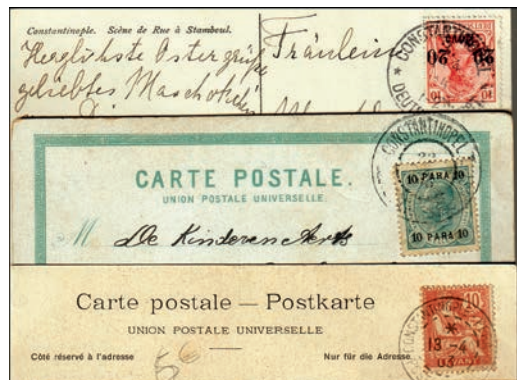 Constantinople. Scène de Rue à Stamboul.
Herzlichste Ostergrüße
geliebtes
Fräulein
CONSTANTINOPEL
DEUTSCHE
20 20
10 10
CARTE POSTALE.
UNION POSTALE UNIVERSELLE.
De Kinderen Aerts
CONSTANTINOPEL
10 PARA 10
10 PARA 10
Carte postale — Postkarte
UNION POSTALE UNIVERSELLE
Côté réservé à l'adresse
Nur für die Adresse
56
10
CONSTANTINOPLE
13 -4
03
LEVANT